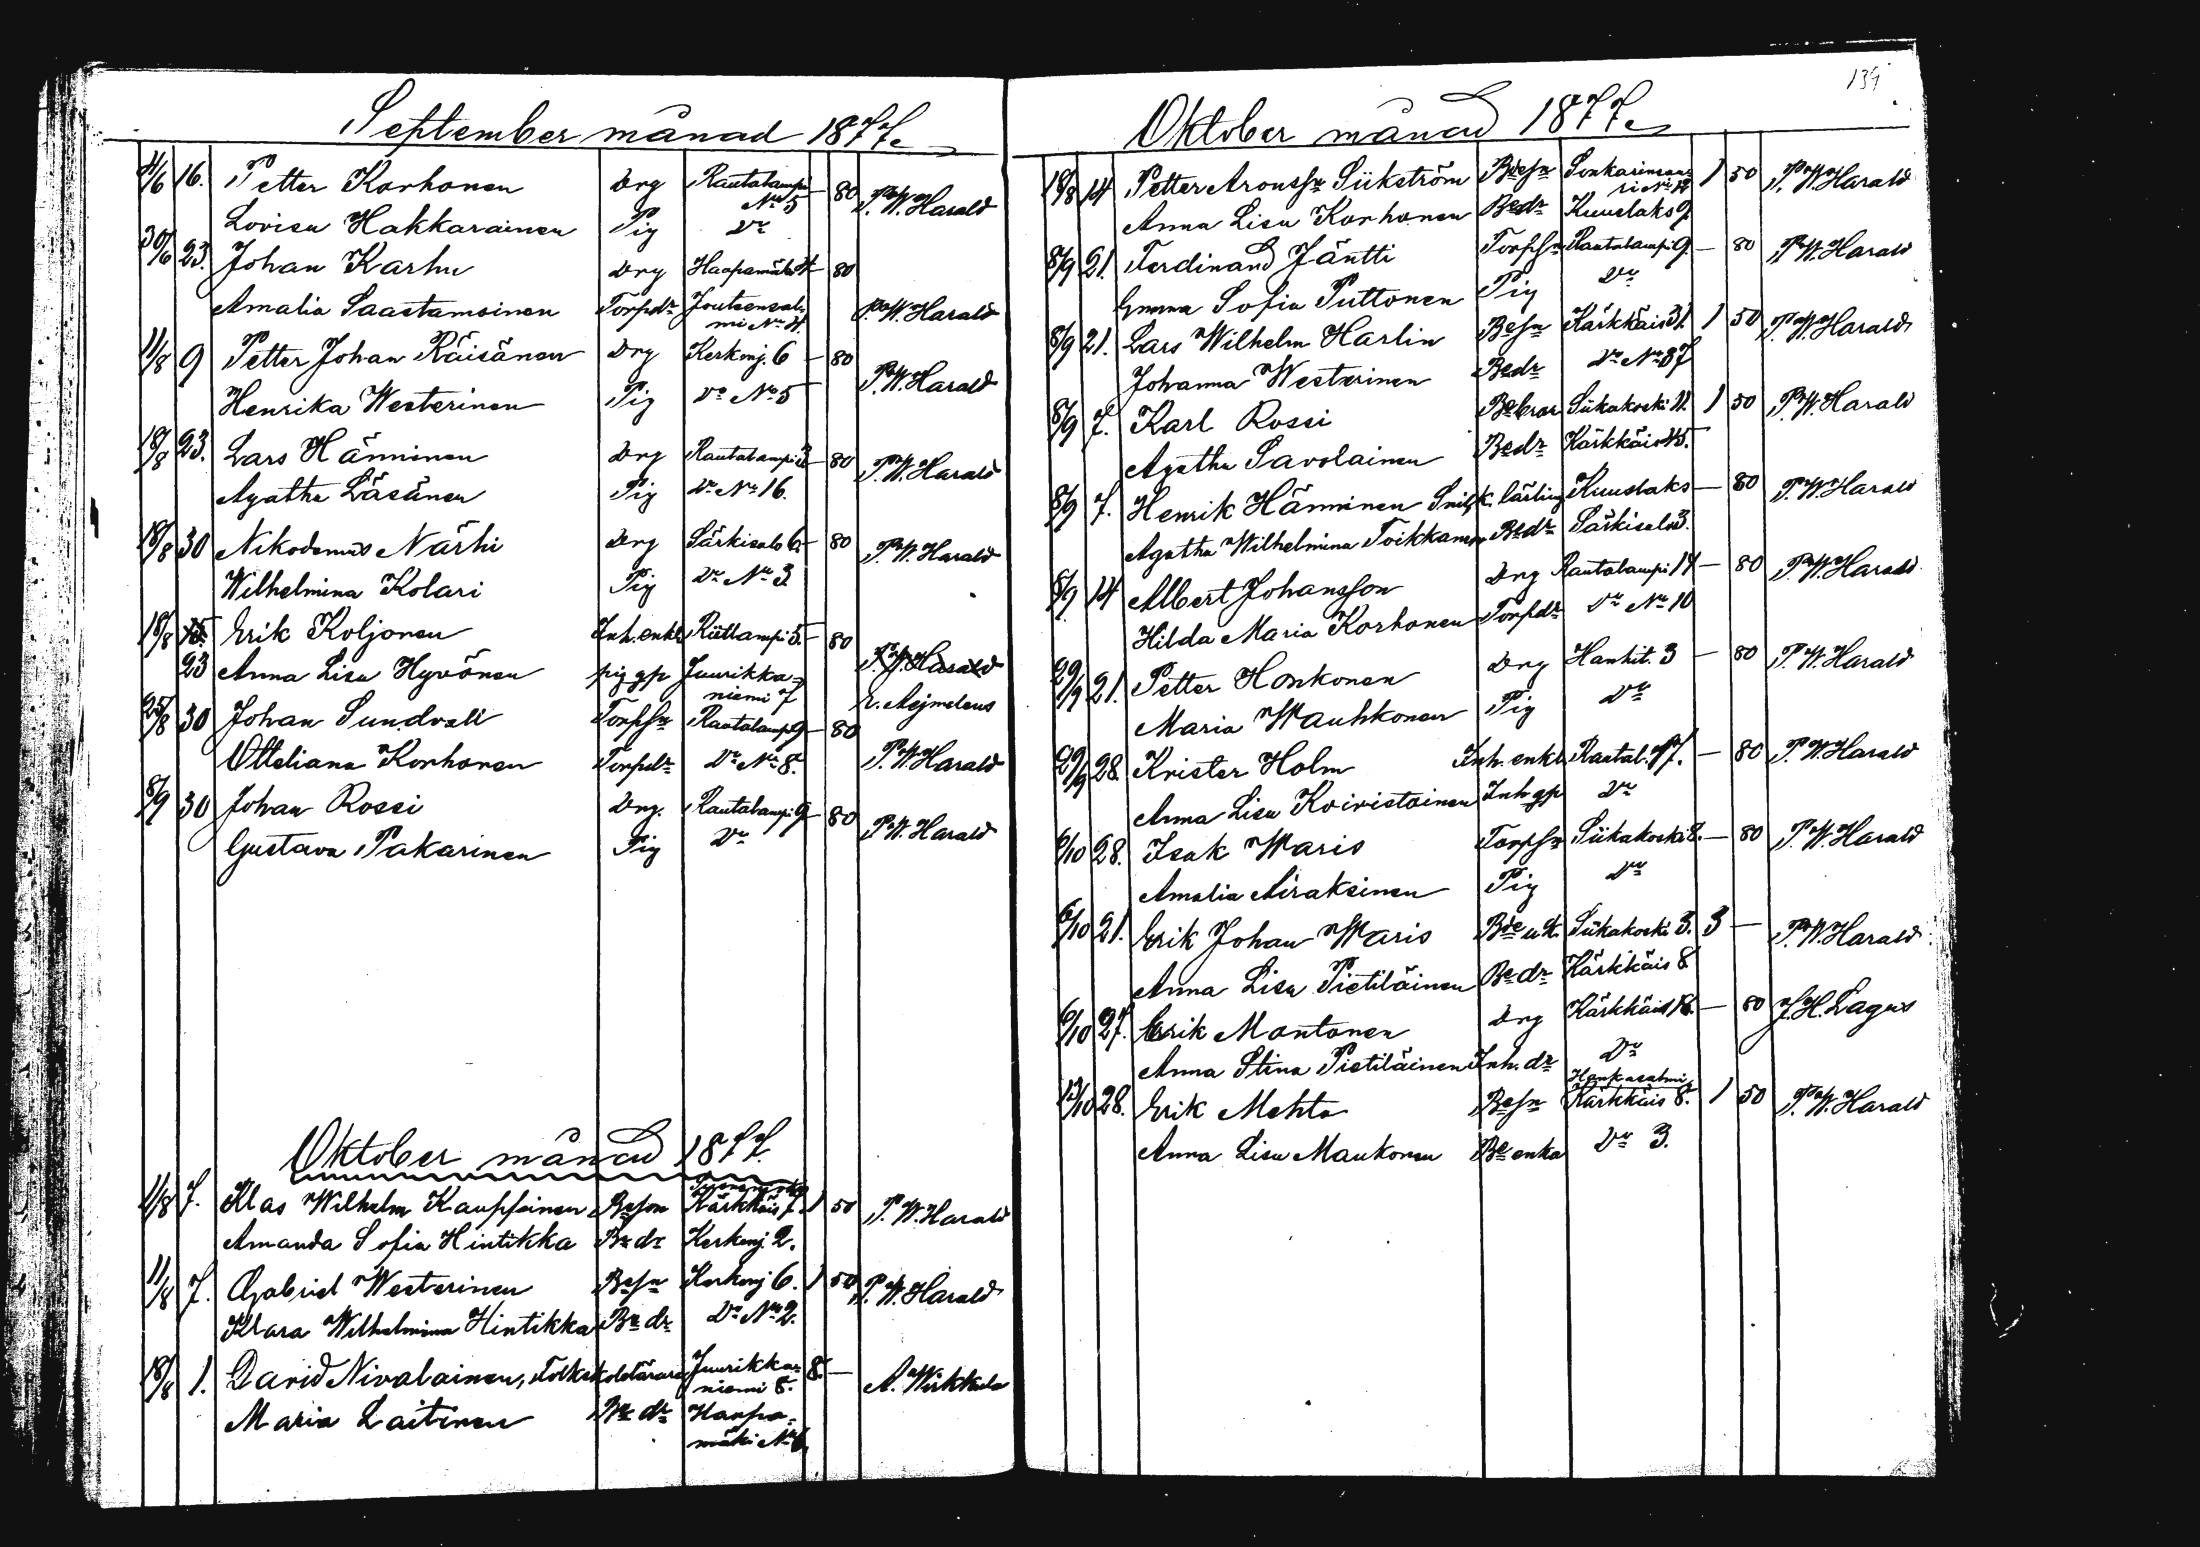 September månad 1877.
16. Petter Korhonen Drg Rautalampi No 5 — 80 P.W. Harald
Lovisa Hakkarainen Pig Do
30/6 23. Johan Karhu Drg Haapamäki 4 — 80
Amalia Saastamoinen Torpdr Joutsensalmi No 4. P.W. Harald
11/8 9 Petter Johan Räisänen Drg Kerkonj. 6 — 80 P.W. Harald
Henrika Westerinen Pig Do No 5
18/8 23. Lars Hänninen Drg Rautalampi 3 — 80 P.W. Harald
Agatha Läsänen Pig Do No 16.
18/8 30 Nikodemus Närhi Drg Särkisalo 6. — 80 P.W. Harald
Wilhelmina Kolari Pig Do No 3
18/8 Erik Koljonen Inh. enkl Riitlampi 5. — 80 P.W. Harald
23 Anna Lisa Hyvönen pig gp Juurikkaniemi 7 E. Aejmelæus
25/8 30 Johan Sundvall Torpsn Rautalamp 9 — 80
Otteliana Korhonen Torpdr Do No 8. P.W. Harald
8/9 30 Johan Rossi Drg. Rautalampi 9 — 80 P.W. Harald
Gustava Pakarinen Pig Do
Oktober månad 1877.
11/8 7. Klas Wilhelm Kauppinen Beson Kärkkäis 7. 1 50 P.W. Harald
Amanda Sofia Hintikka Be dr Kerkonj. 2.
11/8 7. Gabriel Westerinen Besn Kerkonj 6. 1 50 P.W. Harald
Klara Wilhelmina Hintikka Be dr Do No 2.
18/8 1. David Nivalainen, Folkskolelärare Juurikkaniemi 8. 8. — A. Wirkkula
Maria Laitinen Be dr Haapamäki No 6.
139
Oktober månad 1877.
18/8 14 Petter Aronssn Siikström Bdesn Sonkarinsaari No 12 1 50 P.W. Harald
Anna Lisa Korhonen Bedr Kuuslaks 9.
8/9 21. Ferdinand Jäntti Torpsn Rautalampi 9. — 80 P.W. Harald
Emma Sofia Puttonen Pig Do
8/9 21. Lars Wilhelm Harlin Besn Kärkkäis 31. 1 50 P.W. Harald
Johanna Westerinen Bedr Do No 37
8/9 7. Karl Rossi Bebror Siikakoski 11. 1 50 P.W. Harald
Agatha Savolainen Bedr Kärkkäis 45.
8/9 7. Henrik Hänninen Snick. lärling Kuuslaks — 80 P.W. Harald
Agatha Wilhelmina Toikkanen Bedr Särkisalo 3.
8/9 14 Albert Johansson Drg Rautalampi 14 — 80 P.W. Harald
Hilda Maria Korhonen Torpdr Do No 10
29/9 21. Petter Honkonen Drg Hankit. 3 — 80 P.W. Harald
Maria Wauhkonen Pig Do
29/9 28. Krister Holm Inh. enkl. Rautal. 17. — 80 P.W. Harald
Anna Lisa Koivistoinen Inh gp Do
6/10 28. Isak Waris Torpsn Siikakoski 8. — 80 P.W. Harald
Amalia Airaksinen Pig Do
6/10 21. Erik Johan Waris Bde Siikakoski 3. 3 — P.W. Harald
Anna Lisa Pietiläinen Bedr Kärkkäis 8
6/10 27. Erik Montonen Drg Kärkkäis 18. — 80 J.H. Lagus
Anna Stina Pietiläinen Inh. dr Do
13/10 28. Erik Mehto Besn Hankasalmi Kärkkäis 8. 1 50 P.W. Harald
Anna Lisa Maukonen Be enka Do 3.